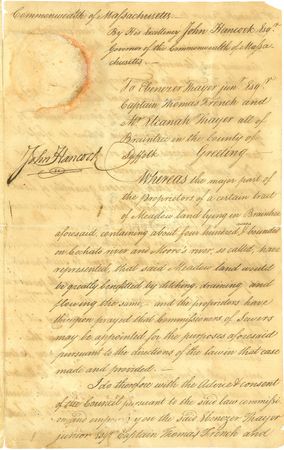 Commonwealth of Massachusetts.
By His Excellency John Hancock Esqr.
Governor of the Commonwealth of Massa-
chusetts.
To Ebenezer Thayer junr. Esqr.
Captain Thomas French and
Mr. Elcanah Thayer all of
Braintree in the County of
Suffolk Greeting
John Hancock
Whereas the major part of
the Proprietors of a certain tract
of Meadow land lying in Braintree
aforesaid, containing about four hundred & bounded
on river and Moore's river, so called, have
represented, that said Meadow land would
be greatly benefitted by ditching, draining and
flowing the same, and the proprietors have
thereupon prayed that Commissioners of Sewers
may be appointed for the purposes aforesaid
pursuant to the directions of the law in that case
made and provided.
I do therefore with the Advice & consent
of the Council pursuant to the said law commissi-
on and empower you the said Ebenezer Thayer
junior Esqr. Captain Thomas French and